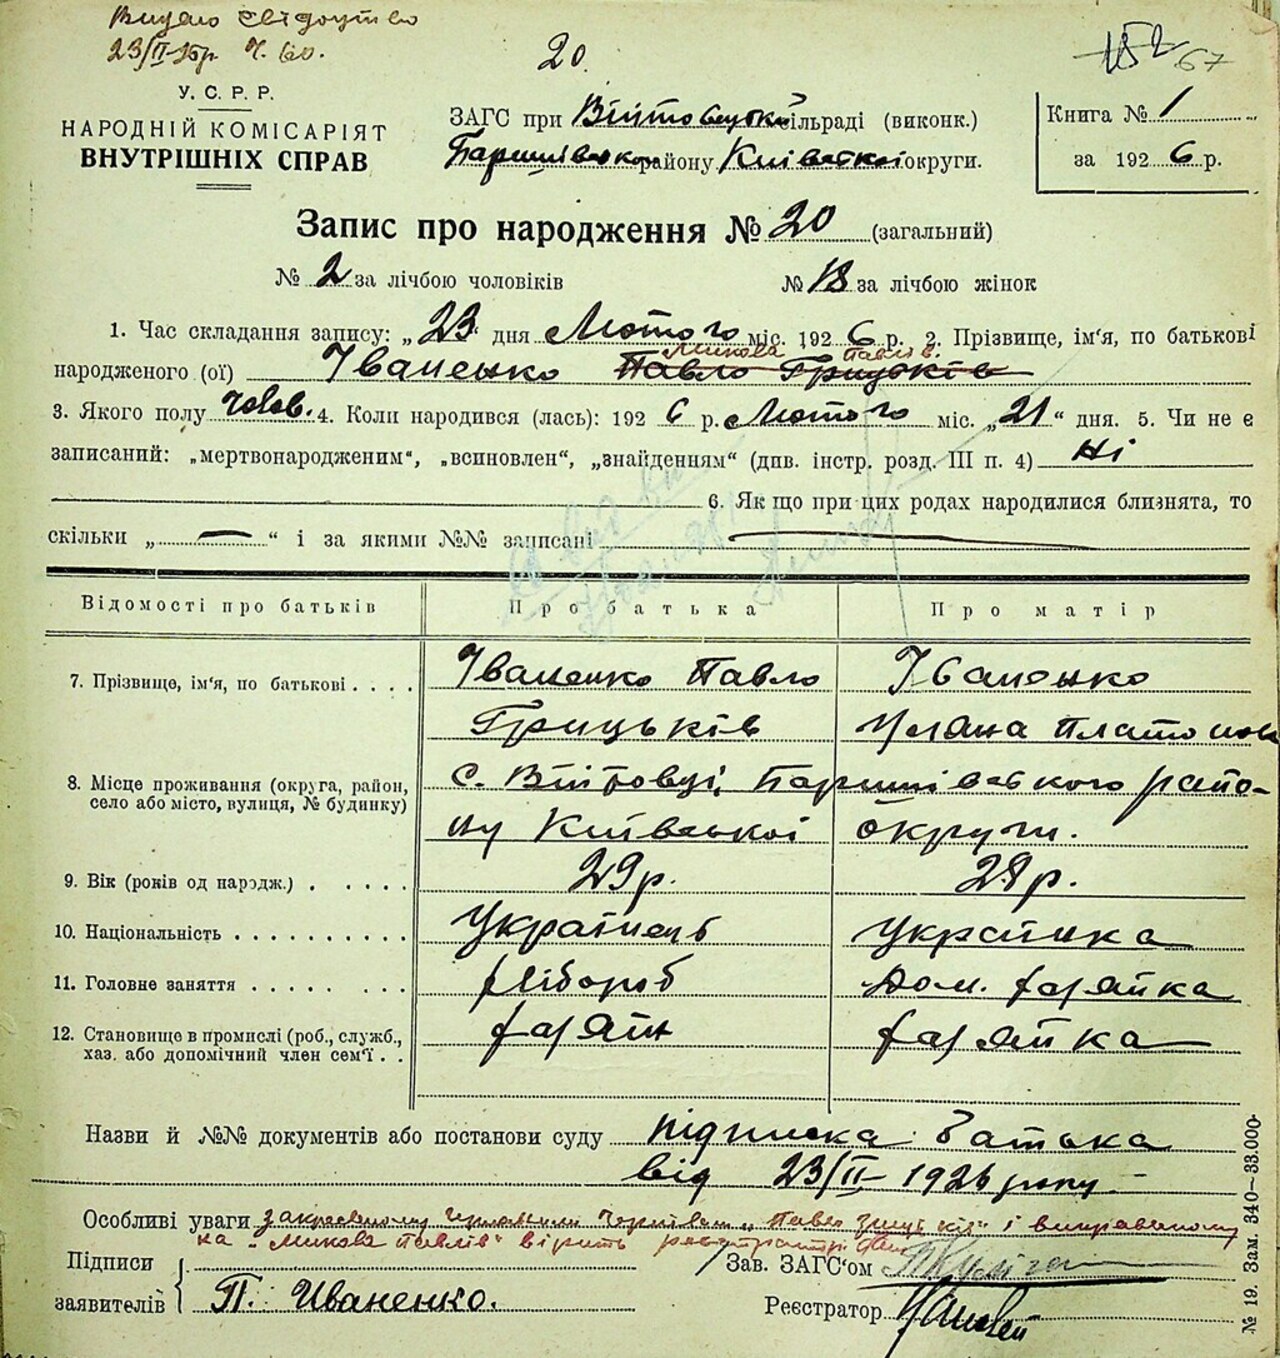 Видано свідоцтво
23/II-26р. Ч. 60.
20.
152 67
У. С. Р. Р.
НАРОДНІЙ КОМІСАРІЯТ
ВНУТРІШНІХ СПРАВ
ЗАГС при Війтовецькій сільраді (виконк.)
Баришівсько району Київської округи.
Книга № 1
за 1926 р.
Запис про народження № 20 (загальний)
№ 2 за лічбою чоловіків № 18 за лічбою жінок
1. Час складання запису: „23“ дня Лютого міс. 1926 р. 2. Прізвище, ім‘я, по батькові
Микола Павлів.
народженого (ої) Іваненко Павло Грицьків
3. Якого полу чолов. 4. Коли народився (лась): 1926 р. Лютого міс. „21“ дня. 5. Чи не є
записаний: „мертвонародженим“, „всиновлен“, „знайденням“ (див. інстр. розд. III п. 4) Ні
6. Як що при цих родах народилися близнята, то
скільки „ — “ і за якими №№ записані —
Відомості про батьків Про батька Про матір
7. Прізвище, ім‘я, по батькові . . . . Іваненко Павло Іваненко
Грицьків Уляна Платонова
8. Місце проживання (округа, район, село або місто, вулиця, № будинку) с. Війтовці, Баришівського райо-
ну Київської округи.
9. Вік (років од народж.) . . . . . 29 р. 28 р.
10. Національність . . . . . . . . . . Українець Українка
11. Головне заняття . . . . . . . . Хлібороб Дом. хазяйка
12. Становище в промислі (роб., служб., хаз. або допомічний член сем‘ї . . Хазяїн хазяйка
Назви й №№ документів або постанови суду підписка батька
від 23/II-1926 року
Особливі уваги закресленому чорнилом „Павло Грицьків“ і виправленому
на „Микола Павлів“ вірить
Підписи
заявителів П. Иваненко.
Зав. ЗАГС‘ом
Реєстратор
№ 19. Зам. 340—33.000.